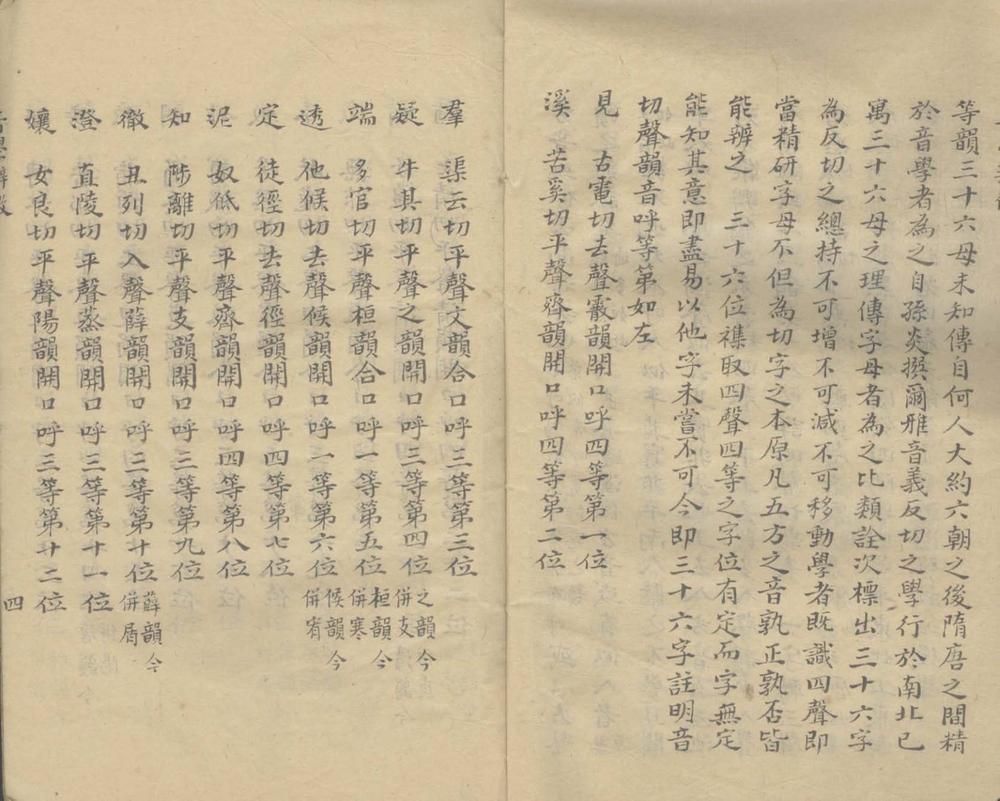 等韻三十六母未知傳自何人大約六朝之後隋唐之間精
於音學者為之自孫炎撰爾雅音義反切之學行於南北已
萬三十六母之理傳字母者為之比類詮次標出三十六字
為反切之總持不可增不可減不可移動學者既識四聲即
當精研字母不但為切字之本原凡五方之音孰正孰否皆
能辨之　三十六位襍取四聲四等之字位有定而字無定
能知其意即盡易以他字未嘗不可今即三十六字註明音
切聲韻音呼等第如左
見　古電切去聲霰韻開口呼四等第一位
溪　苦奚切平聲齊韻開口呼四等第二位
羣　渠云切平聲文韻合口呼三等第三位
疑　牛其切平聲之韻開口呼三等第四位之韻今併支
端　多官切平聲桓韻合口呼一等第五位桓韻今併寒
透　他候切去聲候韻開口呼一等第六位候韻今併宥
定　徒徑切去聲徑韻開口呼四等第七位
泥　奴低切平聲齊韻開口呼四等第八位
知　陟離切平聲支韻開口呼三等第九位
徹　丑列切入聲薛韻開口呼三等第十位薛韻今併屑
澄　直陵切平聲蒸韻開口呼三等第十一位
孃　女良切平聲陽韻開口呼三等第十二位
四